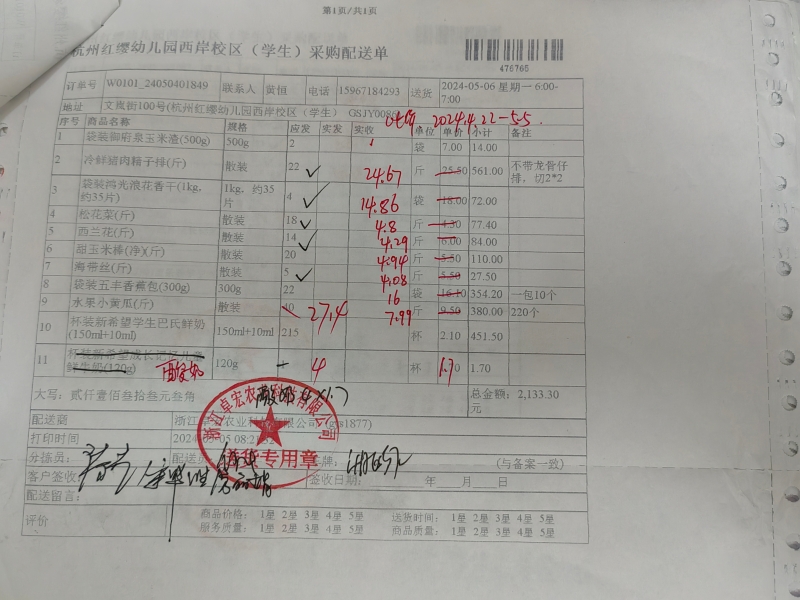 第1页/共1页
杭州红缨幼儿园西岸校区（学生）采购配送单
476765
订单号 W0101_24050401849 联系人 黄恒 电话 15967184293 送货 2024-05-06 星期一 6:00-7:00
地址 文岚街100号(杭州红缨幼儿园西岸校区（学生） GSJY0086
2024.4.22-5.5.
序号 商品名称 规格 应发 实发 实收 单位 单价 小计 备注
1 袋装御府泉玉米渣(500g) 500g 2 袋 7.00 14.00
2 冷鲜猪肉精子排(斤) 散装 22 24.67 斤 25.50 561.00 不带龙骨仔排，切2*2
3 袋装鸿光浪花香干(1kg，约35片) 1kg，约35片 4 14.86 袋 18.00 72.00
4 松花菜(斤) 散装 18 4.8 斤 4.30 77.40
5 西兰花(斤) 散装 14 4.29 斤 6.00 84.00
6 甜玉米棒(净)(斤) 散装 20 4.94 斤 5.50 110.00
7 海带丝(斤) 散装 5 4.08 斤 5.50 27.50
8 袋装五丰香蕉包(300g) 300g 22 16 袋 16.10 354.20 一包10个
9 水果小黄瓜(斤) 散装 40 27.4 7.99 斤 9.50 380.00 220个
10 杯装新希望学生巴氏鲜奶(150ml+10ml) 150ml+10ml 215 杯 2.10 451.50
11 杯装新希望成长记忆儿童鲜牛奶(120g) 酸奶 120g 4 杯 1.70 1.70
大写：贰仟壹佰叁拾叁元叁角 酸奶 4×1.7 总金额：2,133.30元
配送商 浙江卓宏农业科技有限公司(gfs1877)
浙江卓宏农业科技有限公司
送货专用章
打印时间 2024-05-05 08:21:
分拣员： 配送员： 车牌： (与备案一致)
客户签收： 签收日期： 年 月 日
配送留言：
评价 商品价格： 1星 2星 3星 4星 5星 送货时间： 1星 2星 3星 4星 5星
服务质量： 1星 2星 3星 4星 5星 商品质量： 1星 2星 3星 4星 5星